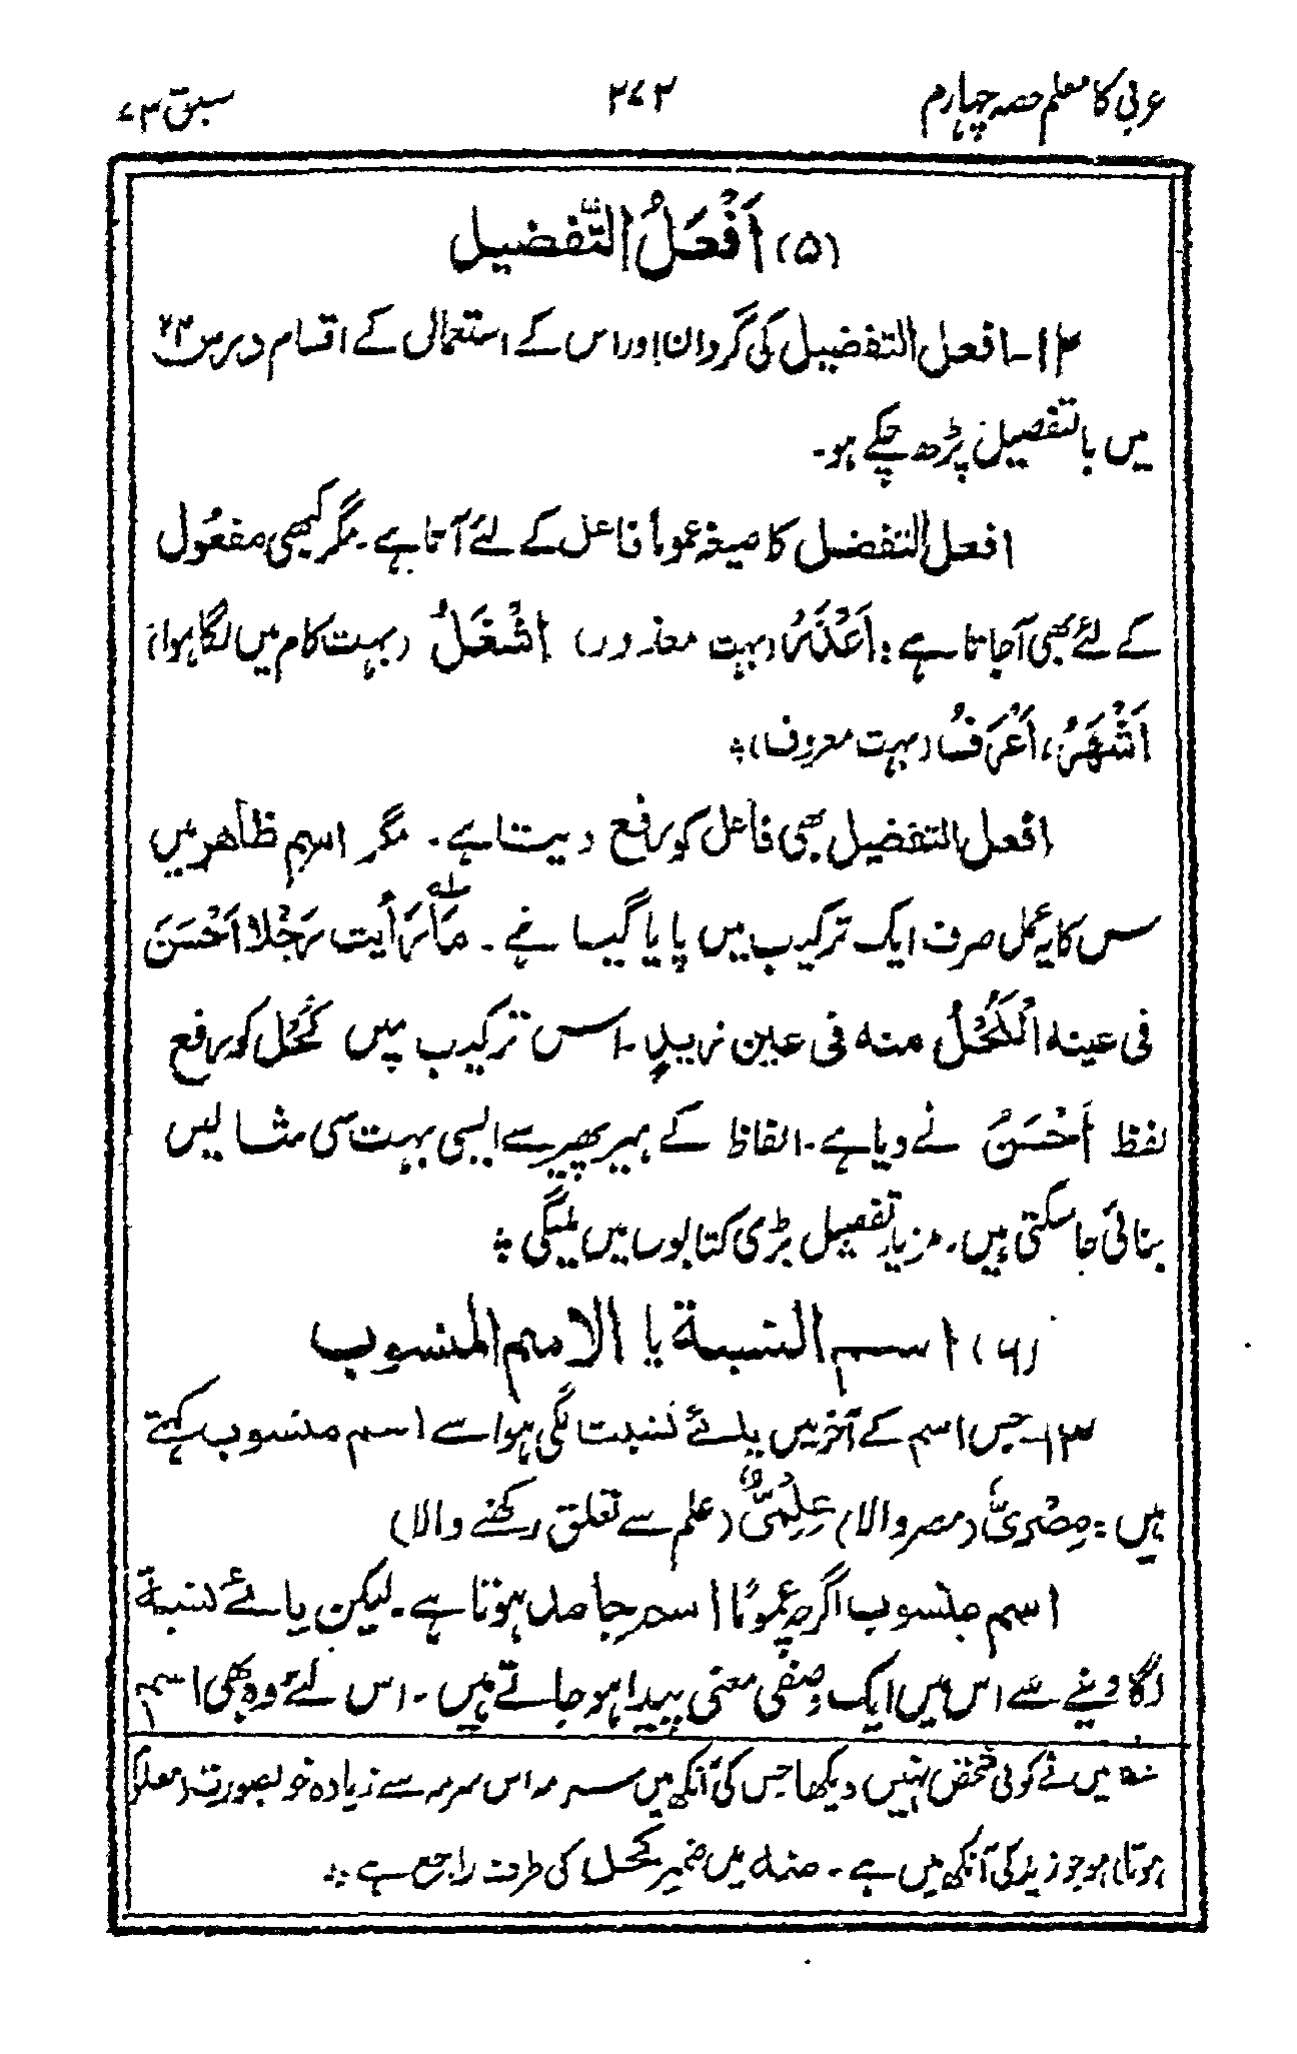 عربی کا معلم حصہ چہارم ۲۷۲ سبق ۷۳
(۵) اَفْعَلُ التَّفضیل
۱۲- افعل التفضیل کی گردان اور اس کے استعمال کے اقسام درس ۲۳
میں بالتفصیل پڑھ چکے ہو۔
افعل التفضل کا صیغہ عموماً فاعل کے لئے آتا ہے۔ مگر کبھی مفعُول
کے لئے بھی آجاتا ہے: اَعْذَرُ (بہت معذور) اَشْغَلُ (بہت کام میں لگا ہوا)
اَشْهَرُ، اَعْرَفُ (بہت معروف) ؞
افعل التفضیل بھی فاعل کو رفع دیتا ہے۔ مگر اسم ظاھر میں
اس کا یہ عمل صرف ایک ترکیب میں پایا گیا ہے۔ مَا رَأیت رَجُلاً اَحْسَنَ
فی عینه الْکُحْلُ منه فی عین زیدٍ۔ اس ترکیب میں کُحْل کو رفع
لفظ اَحْسَنُ نے دیا ہے۔ الفاظ کے ہیر پھیر سے ایسی بہت سی مثالیں
بنائی جا سکتی ہیں۔ مزید تفصیل بڑی کتابوں میں ملیگی ؞
(۶) اسم النسبة یا الاسم المنسوب
۱۳- جس اسم کے آخر میں یائے نسبت لگی ہو اسے اسم منسوب کہتے
ہیں: مِصْرِیٌّ (مصر والا) عِلْمِیٌّ (علم سے تعلق رکھنے والا)
اسم منسوب اگرچہ عمومًا اسم جامد ہوتا ہے۔ لیکن یائے نسبة
لگا دینے سے اس میں ایک وصفی معنی پیدا ہو جاتے ہیں۔ اس لئے وہ بھی اسم
لہ میں نے کوئی شخص نہیں دیکھا جس کی آنکھ میں سرمہ اس سرمہ سے زیادہ خوبصورت (معلوم
ہوتا) ہو جو زید کی آنکھ میں ہے۔ منه میں ضمیر کُحل کی طرف راجع ہے ؞